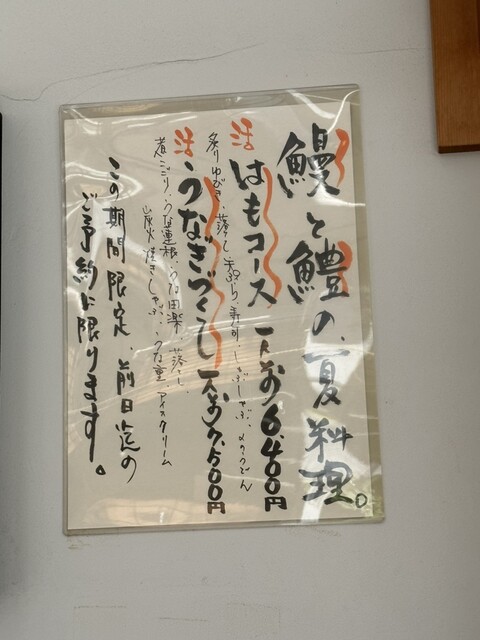 鰻と鱧の、夏料理。
活はもコース 一人前6,400円
炙りゆびき、落とし、天ぷら、寿司、しゃぶしゃぶ、〆のうどん
活うなぎづくし 一人前7,500円
煮こごり、うな蓮根、うな田楽、落とし、
炭火焼きしゃぶ、うな重、アイスクリーム
この期間限定、前日迄の
ご予約に限ります。